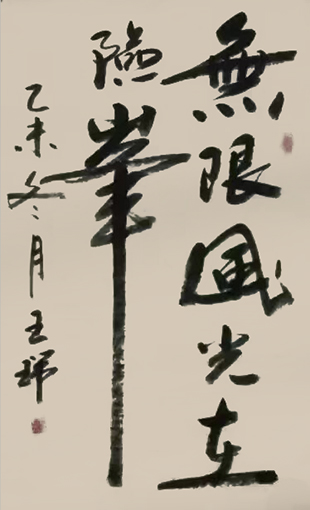 無限風光在
險峯
乙未冬月王瑞